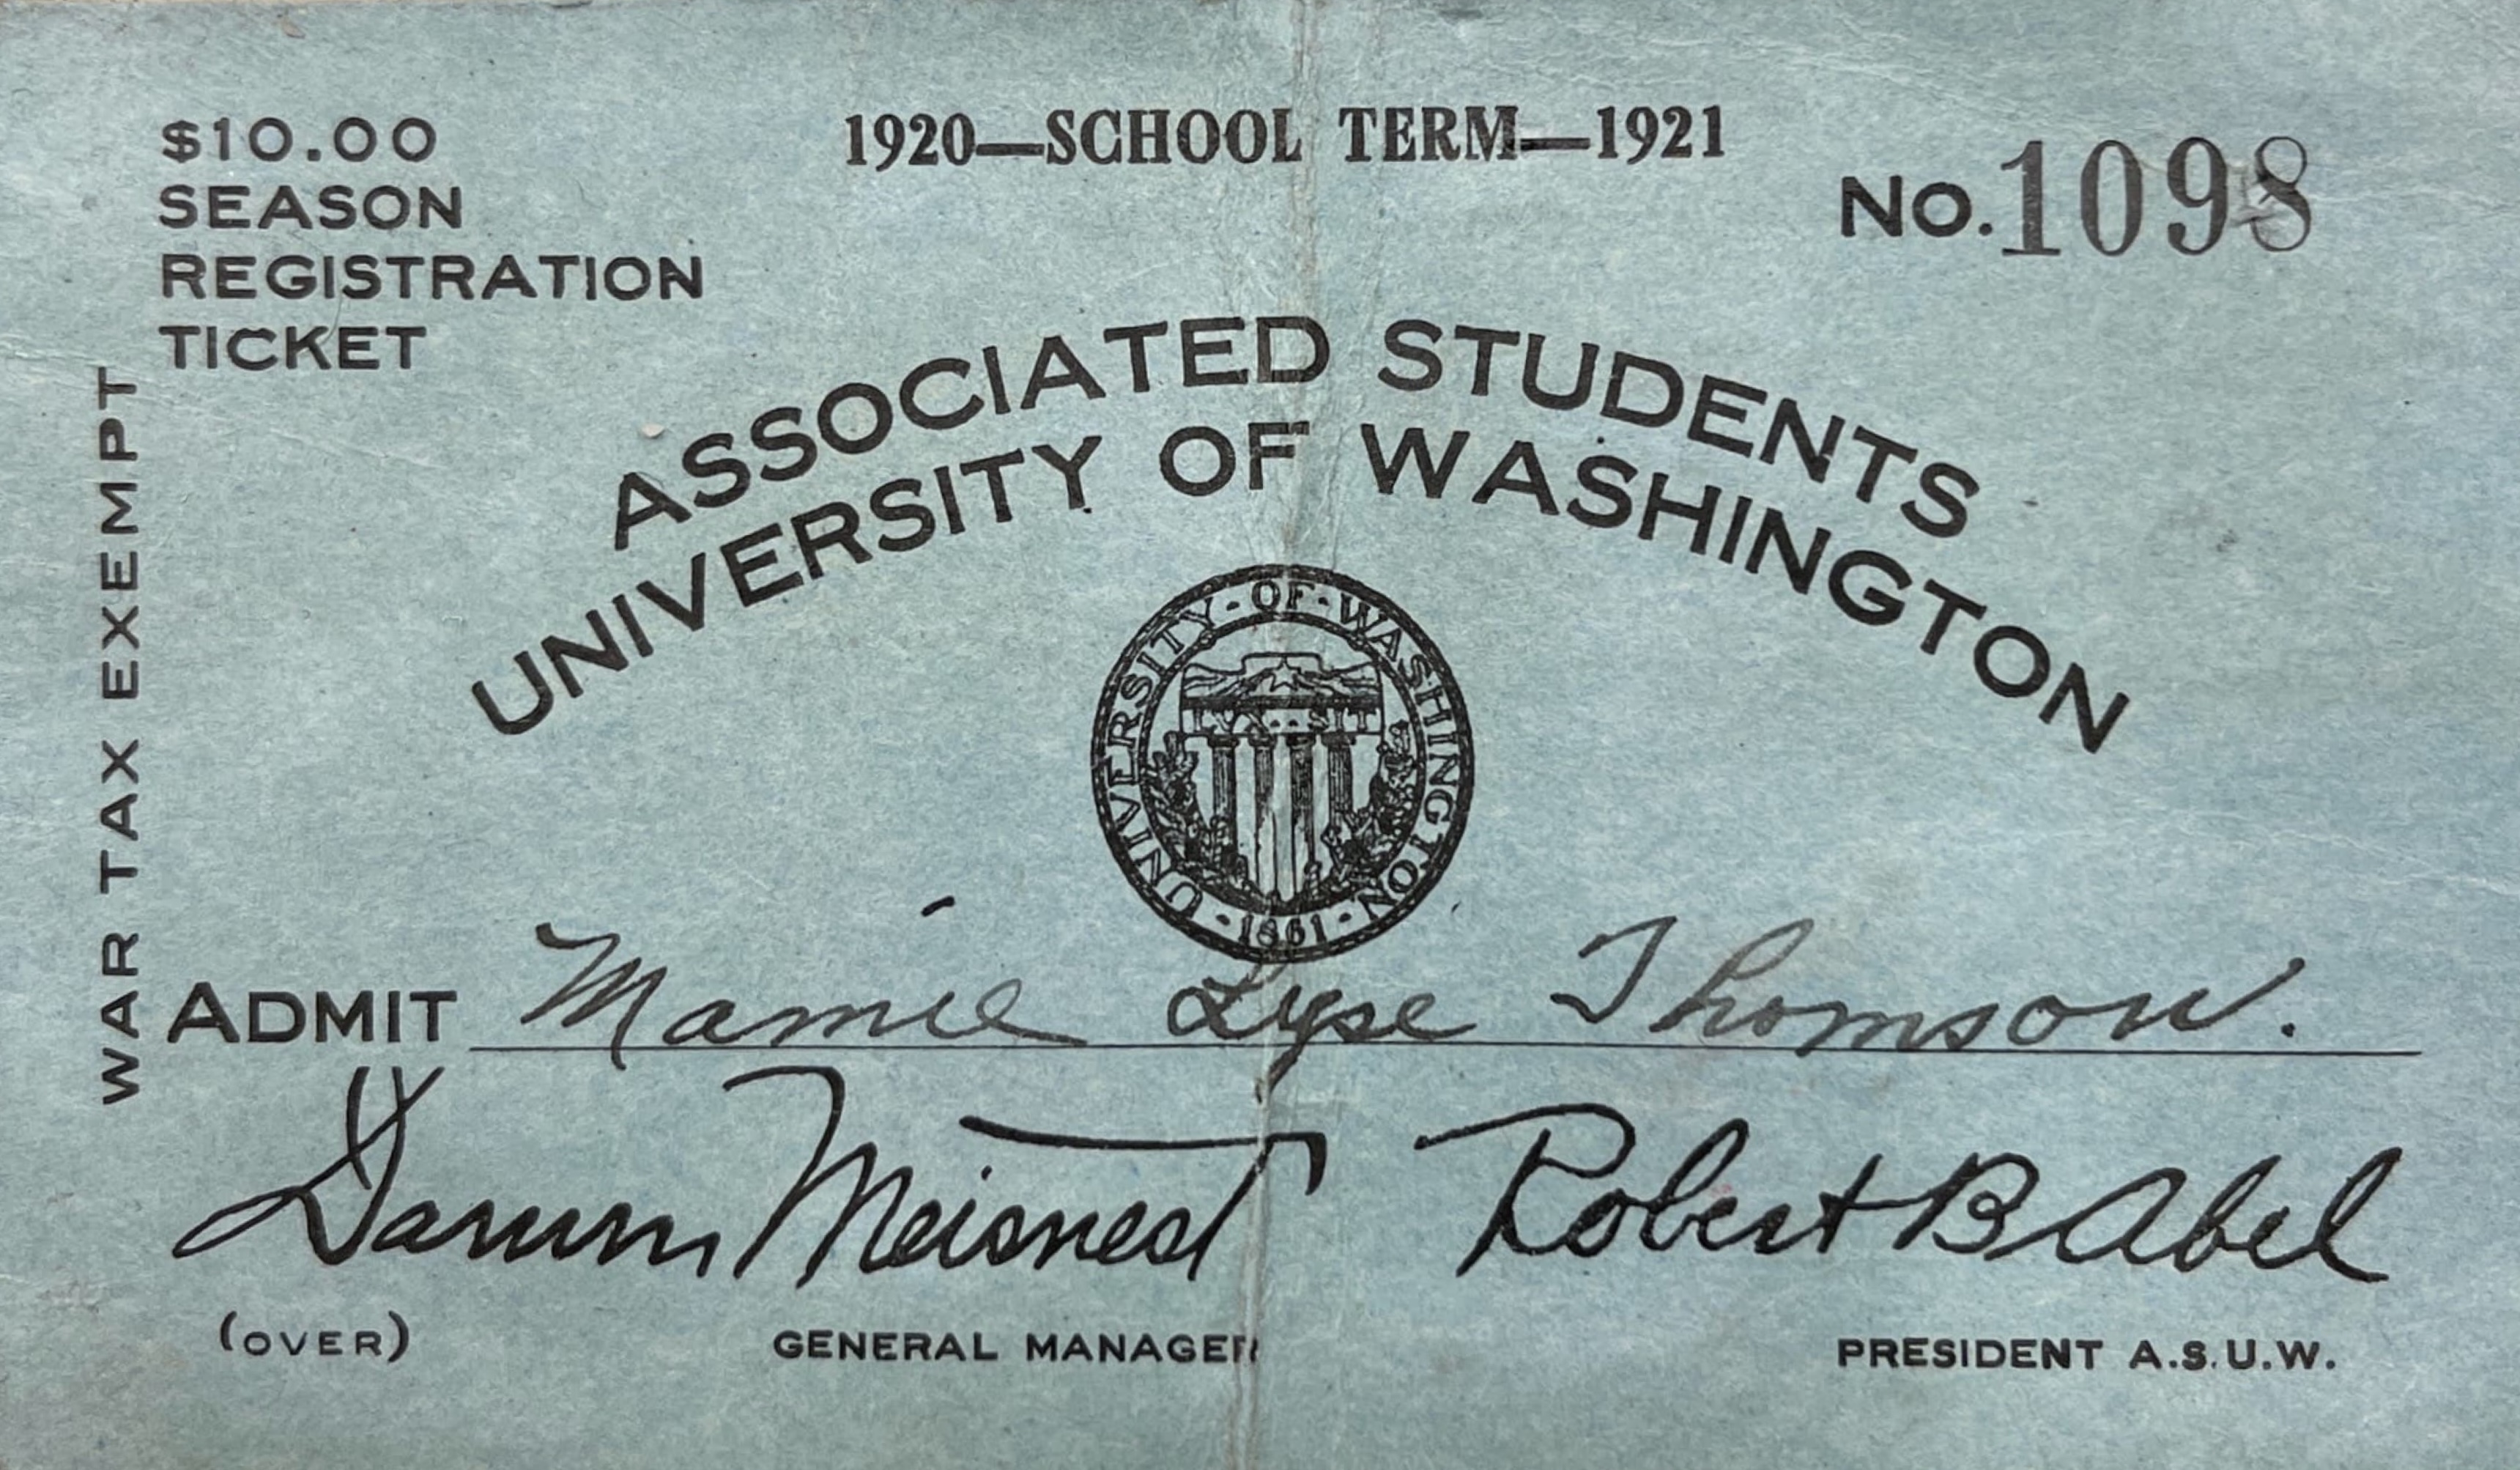 $10.00
SEASON
REGISTRATION
TICKET
1920—SCHOOL TERM—1921
No. 1098
WAR TAX EXEMPT
ASSOCIATED STUDENTS
UNIVERSITY OF WASHINGTON
UNIVERSITY · OF · WASHINGTON
· 1861 ·
ADMIT Mamie Lyse Thomson.
Darwin Meisnest Robert B Abel
(OVER) GENERAL MANAGER PRESIDENT A.S.U.W.